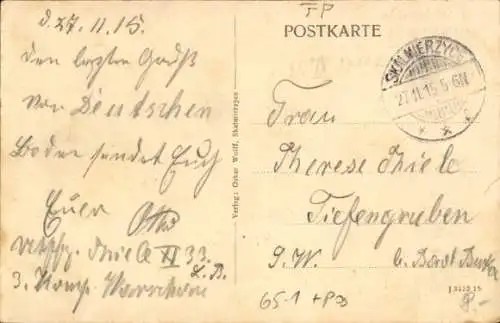 FP
d. 27. 11. 15.
Den letzten Gruß
von Deutschen
Boden sendet Euch
Euer Otto
Thiele II 33.
L. B.
3. Komp. Warschau
Verlag: Oskar Wolff, Skalmierzyce
POSTKARTE
SKALMIERZYCE
27.11.15. 5-6N
* * *
Frau
Therese Thiele
Tiefengruben
S. W. b. Bad Berka
J 3153 15
65-1 + P
8.-